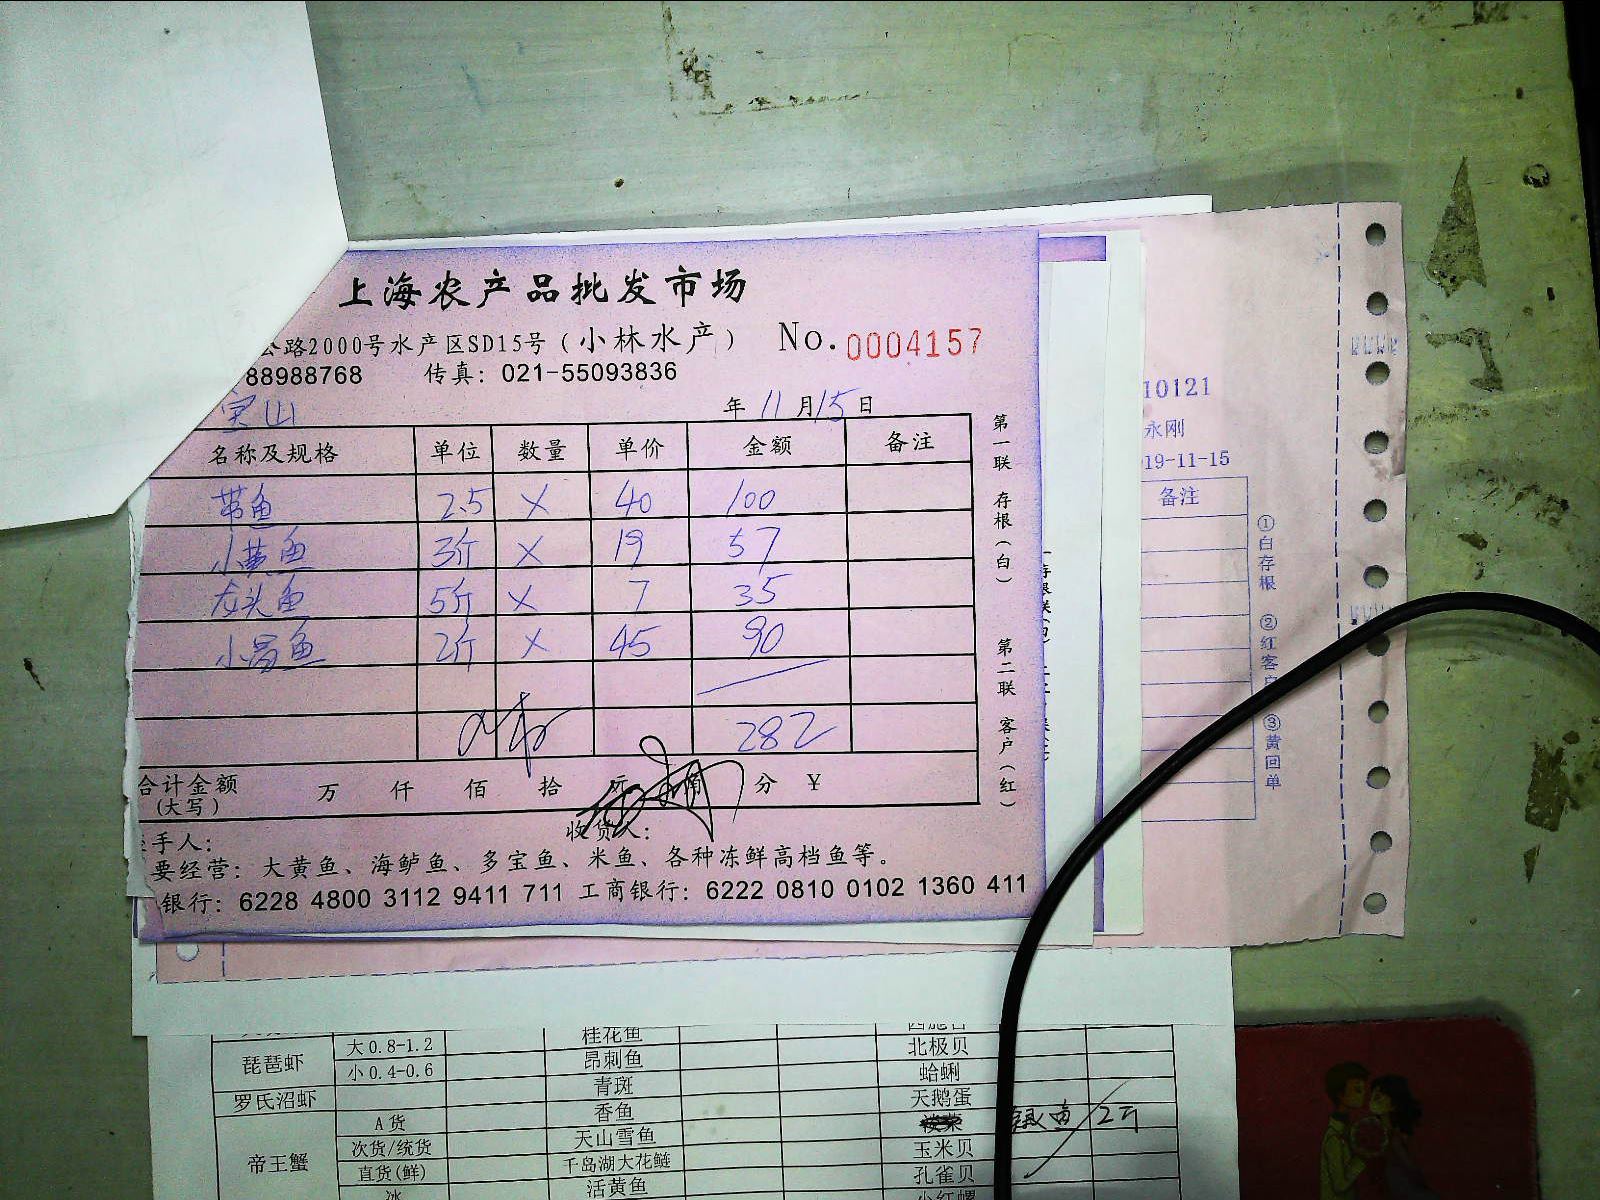 上海农产品批发市场
公路2000号水产区SD15号(小林水产) No.0004157
88988768 传真: 021-55093836
宝山 年 11 月 15 日
名称及规格 单位 数量 单价 金额 备注
带鱼 2.5 X 40 100
小黄鱼 3斤 X 19 57
龙头鱼 5斤 X 7 35
小昌鱼 2斤 X 45 90
282
合计金额 万 仟 佰 拾 元 角 分 ¥
(大写)
手人: 收货人:
要经营: 大黄鱼、海鲈鱼、多宝鱼、米鱼、各种冻鲜高档鱼等。
银行: 6228 4800 3112 9411 711 工商银行: 6222 0810 0102 1360 411
第一联 存根(白) 第二联 客户(红)
10121
永刚
19-11-15
备注
①白存根 ②红客户 ③黄回单
桂花鱼
琵琶虾 大0.8-1.2 北极贝
小0.4-0.6 昂刺鱼 蛤蜊
罗氏沼虾 青斑 天鹅蛋
帝王蟹 A货 香鱼 银鱼 2斤
次货/统货 天山雪鱼 玉米贝
直货(鲜) 千岛湖大花鲢 孔雀贝
冰 活黄鱼 小红螺